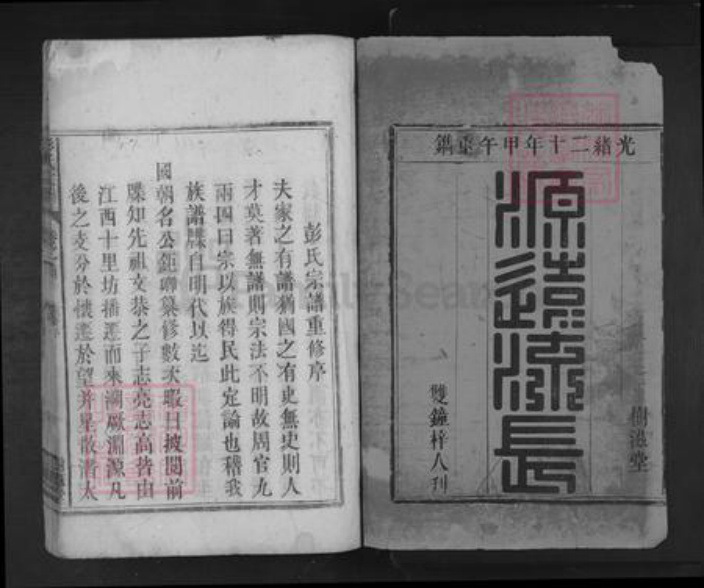 光緒二十年甲午重鐫
樹滋堂
源遠流長
雙鐘梓人刋
彭氏宗譜重修序
夫家之有譜猶國之有史無史則人
才莫著無譜則宗法不明故周官九
兩四曰宗以族得民此定論也稽我
族譜牒自明代以迄
國朝名公鉅卿纂修數次暇日披閱前
牒知先祖文恭之子志亮志高皆由
江西十里坊播遷而來溯厥淵源凡
後之支分於懷遷於望井星散者太